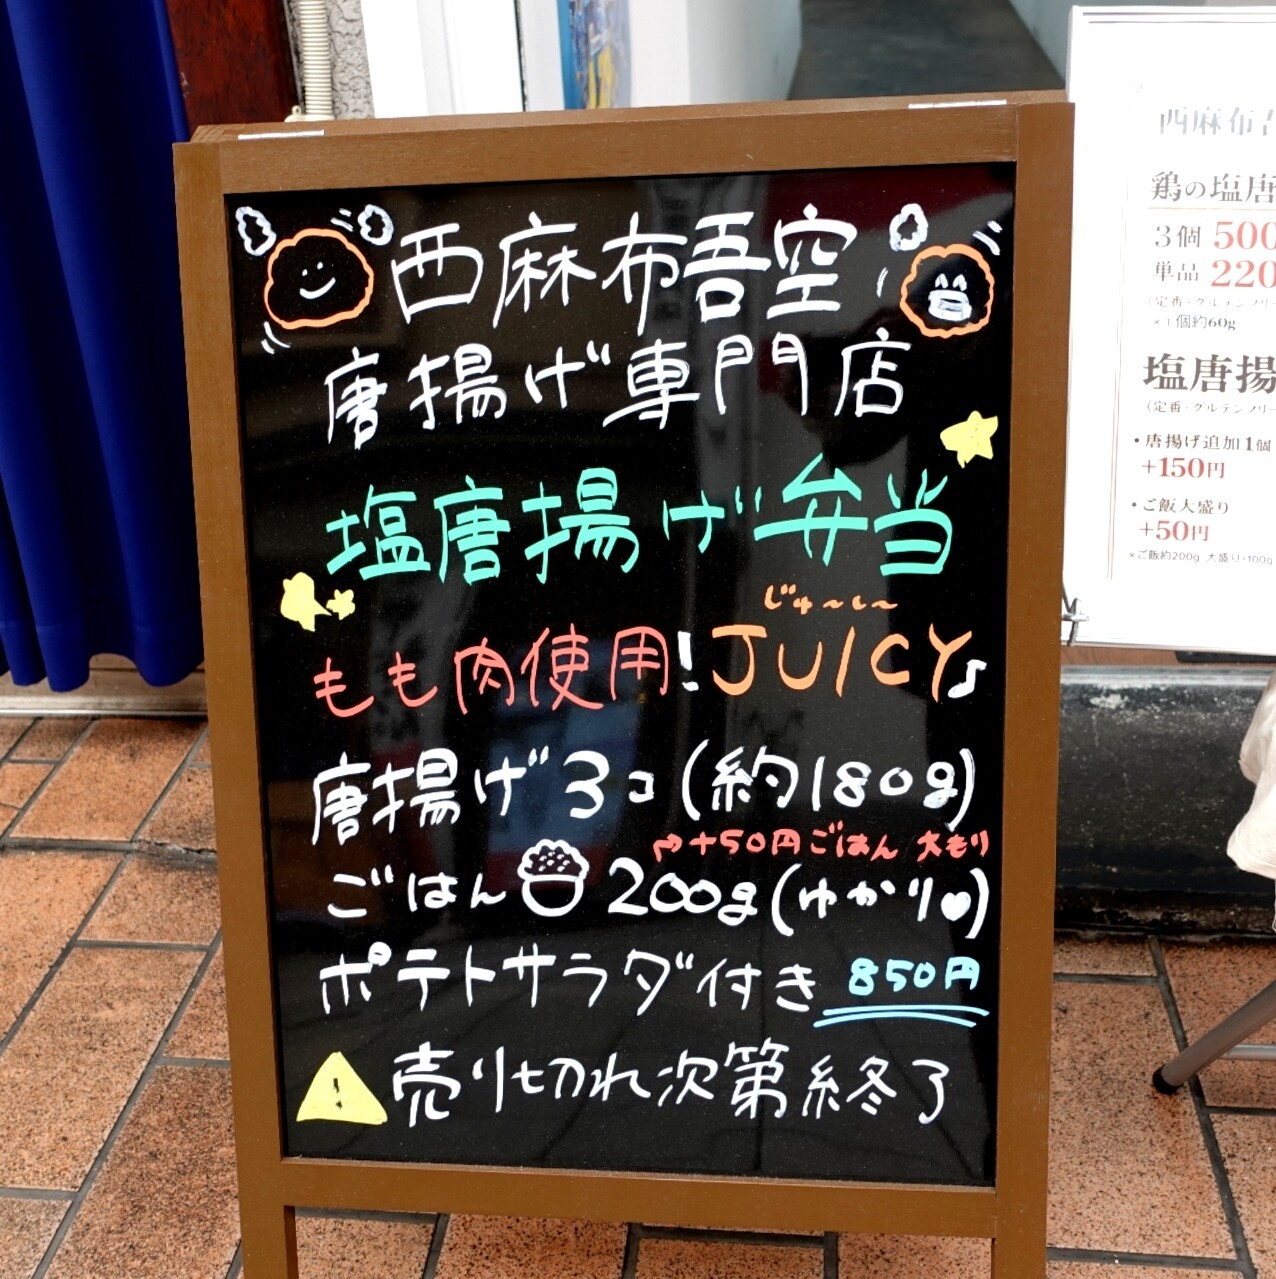 西麻布吾空
唐揚げ専門店
塩唐揚げ弁当
じゅ〜し〜
もも肉使用!JUICY♪
唐揚げ3コ(約180g)
→+50円ごはん大もり
ごはん 200g(ゆかり♥)
ポテトサラダ付き 850円
! 売り切れ次第終了
西麻布
鶏の塩唐
3個 500
単品 220
(定番・グルテンフリー
×1個約60g
塩唐揚
(定番・グルテンフリー
・唐揚げ追加1個
+150円
・ご飯大盛り
+50円
※ご飯約200g 大盛り+100g